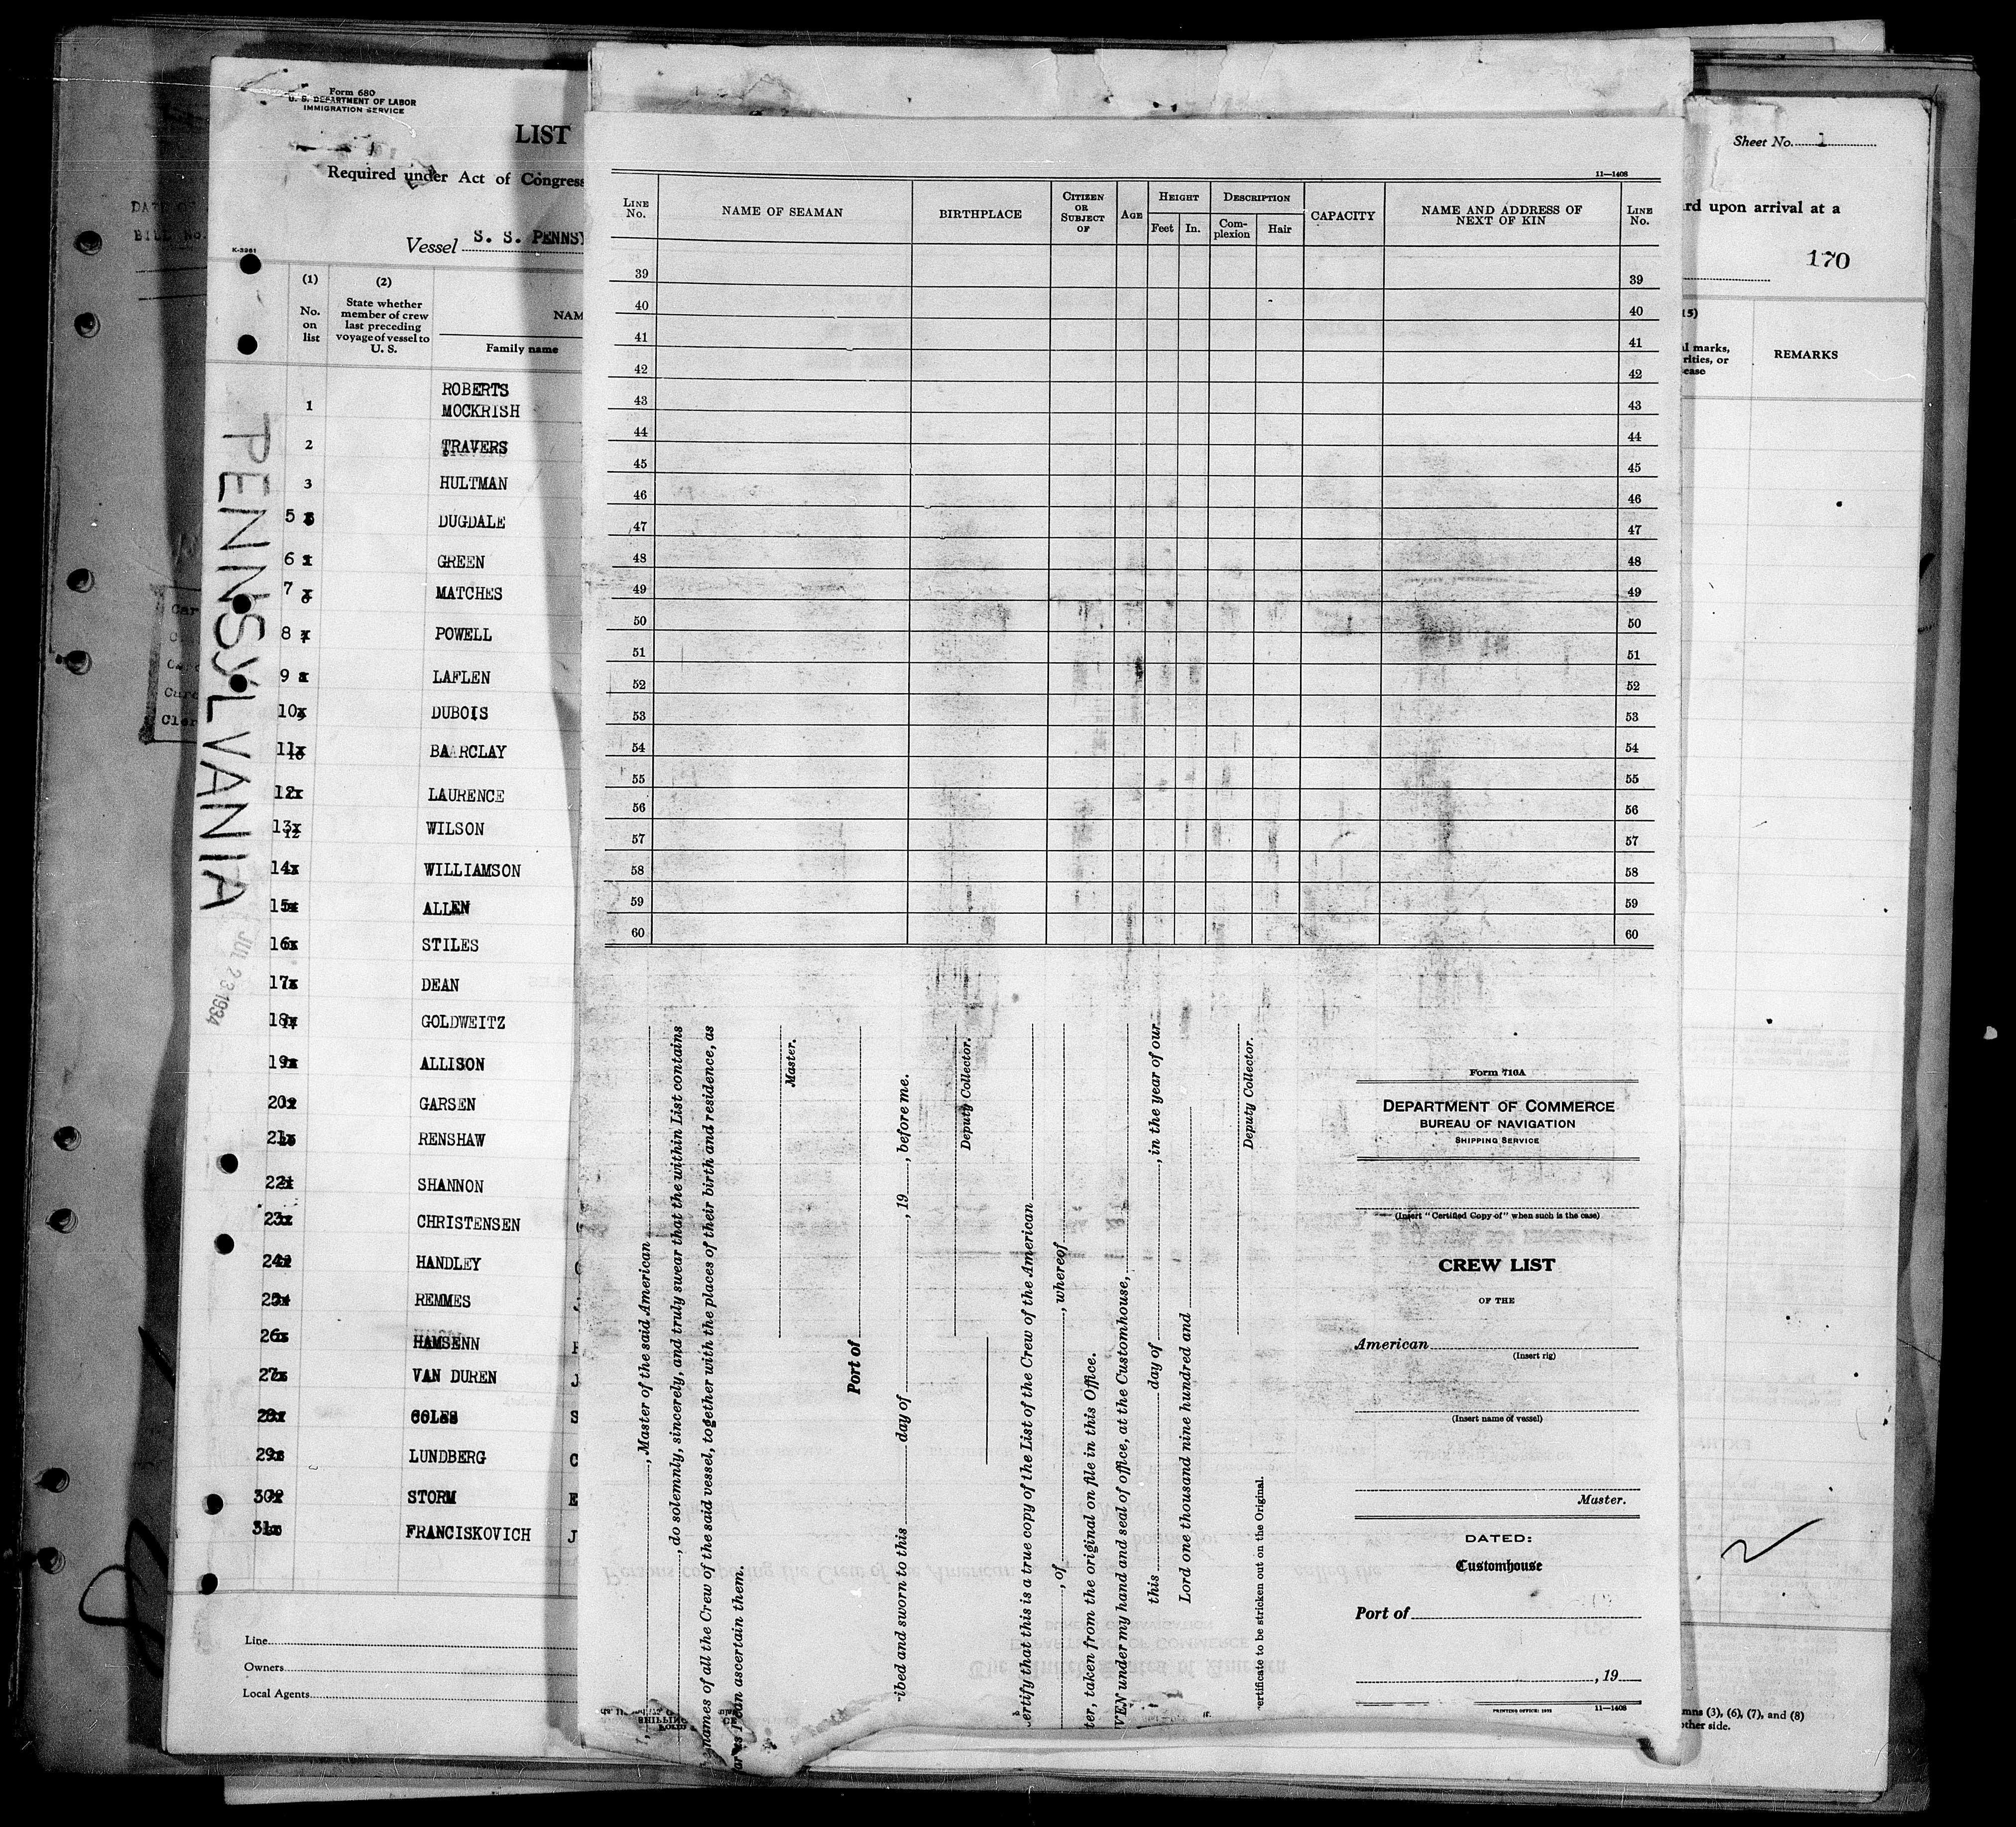 Form 680
U. S. DEPARTMENT OF LABOR
IMMIGRATION SERVICE
LIST
Required under Act of Congress
Vessel S. S. PENNSY
K-3961
(1)
No.
on
list
(2)
State whether
member of crew
last preceding
voyage of vessel to
U. S.
NAM
Family name
ROBERTS
1 MOCKRISH
2 TRAVERS
3 HULTMAN
5 DUGDALE
6 GREEN
7 MATCHES
8 POWELL
9 LAFLEN
10 DUBOIS
11 BAARCLAY
12 LAURENCE
13 WILSON
14 WILLIAMSON
15 ALLEN
16 STILES
17 DEAN
18 GOLDWEITZ
19 ALLISON
20 GARSEN
21 RENSHAW
22 SHANNON
23 CHRISTENSEN
24 HANDLEY
25 REMMES
26 HAMSENN
27 VAN DUREN J
28 COLES S
29 LUNDBERG C
30 STORM E
31 FRANCISKOVICH J
Line
Owners
Local Agents
PENNSYLVANIA
JUL 23 1934
DATE OF
BILL No.
Car
Card
Card
Cler
11—1408
LINE No.
NAME OF SEAMAN
BIRTHPLACE
CITIZEN OR SUBJECT OF
AGE
HEIGHT
Feet In.
DESCRIPTION
Complexion Hair
CAPACITY
NAME AND ADDRESS OF NEXT OF KIN
LINE No.
39 39
40 40
41 41
42 42
43 43
44 44
45 45
46 46
47 47
48 48
49 49
50 50
51 51
52 52
53 53
54 54
55 55
56 56
57 57
58 58
59 59
60 60
, Master of the said American
, do solemnly, sincerely, and truly swear that the within List contains
names of all the Crew of the said vessel, together with the places of their birth and residence, as
far as I can ascertain them.
Master.
Port of
ibed and sworn to this day of , 19 , before me.
Deputy Collector.
ertify that this is a true copy of the List of the Crew of the American
, of , whereof
ter, taken from the original on file in this Office.
VEN under my hand and seal of office, at the Customhouse,
this day of , in the year of our
Lord one thousand nine hundred and
Deputy Collector.
ertificate to be stricken out on the Original.
Form 716A
DEPARTMENT OF COMMERCE
BUREAU OF NAVIGATION
SHIPPING SERVICE
(Insert "Certified Copy of" when such is the case)
CREW LIST
OF THE
American
(Insert rig)
(Insert name of vessel)
Master.
DATED:
Customhouse
Port of
, 19
PRINTING OFFICE: 11—1408
Sheet No. 1
rd upon arrival at a
170
15)
l marks,
rities, or
ease
REMARKS
mns (3), (6), (7), and (8)
other side.